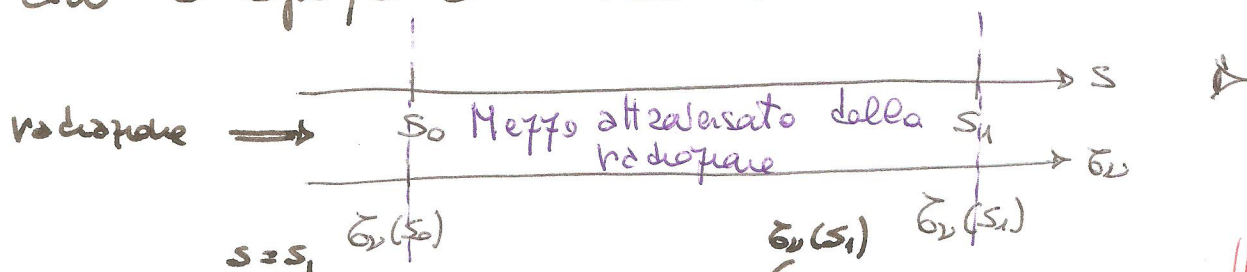 S
radiazione S₀ Mezzo attraversato dalla S₁
radiazione
τν
τν(S₀) τν(S₁)
s=s₁ τν(S₁)